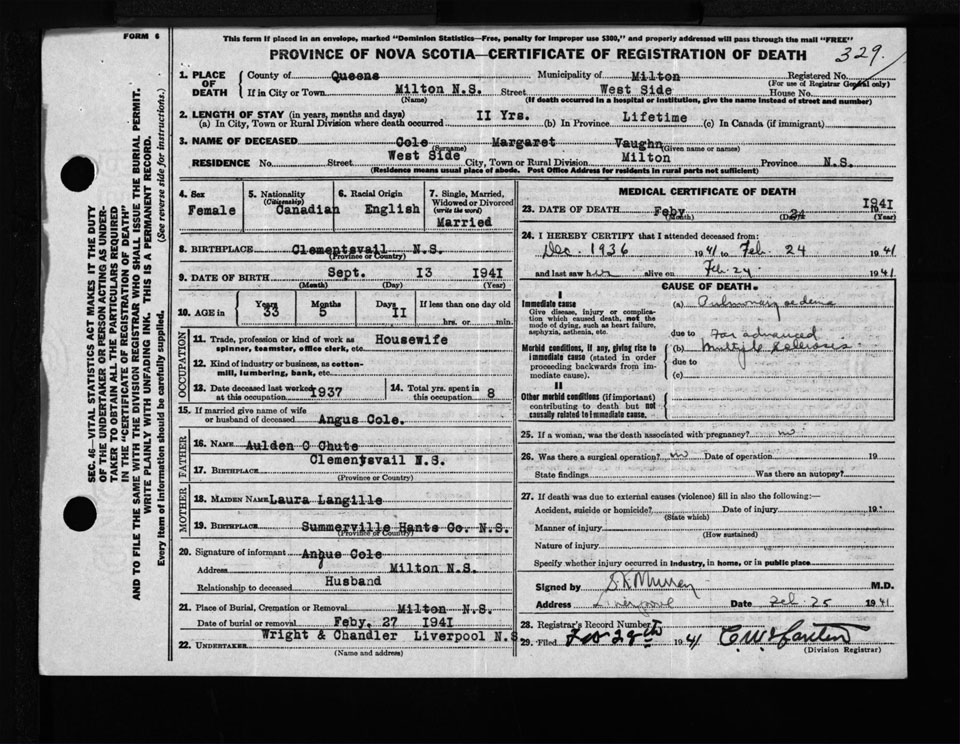 FORM 6
This form if placed in an envelope, marked "Dominion Statistics—Free, penalty for improper use $300," and properly addressed will pass through the mail "FREE"
PROVINCE OF NOVA SCOTIA—CERTIFICATE OF REGISTRATION OF DEATH
329
SEC. 46—VITAL STATISTICS ACT MAKES IT THE DUTY
OF THE UNDERTAKER OR PERSON ACTING AS UNDER-
TAKER TO OBTAIN ALL THE PARTICULARS REQUIRED
IN THE "CERTIFICATE OF REGISTRATION OF DEATH"
AND TO FILE THE SAME WITH THE DIVISION REGISTRAR WHO SHALL ISSUE THE BURIAL PERMIT.
WRITE PLAINLY WITH UNFADING INK. THIS IS A PERMANENT RECORD.
Every item of information should be carefully supplied. (See reverse side for instructions.)
1. PLACE OF DEATH County of Queens Municipality of Milton Registered No.
(For use of Registrar General only)
If in City or Town Milton N.S. Street West Side House No.
(Name) (If death occurred in a hospital or institution, give the name instead of street and number)
2. LENGTH OF STAY (in years, months and days)
(a) In City, Town or Rural Division where death occurred II Yrs. (b) In Province Lifetime (c) In Canada (if immigrant)
3. NAME OF DECEASED Cole Margaret Vaughn
(Surname) (Given name or names)
RESIDENCE No. Street West Side City, Town or Rural Division Milton Province N.S.
(Residence means usual place of abode. Post Office Address for residents in rural parts not sufficient)
4. Sex Female
5. Nationality (Citizenship) Canadian
6. Racial Origin English
7. Single, Married, Widowed or Divorced (write the word) Married
8. BIRTHPLACE Clementsvail N.S.
(Province or Country)
9. DATE OF BIRTH Sept. I3 I94I
(Month) (Day) (Year)
10. AGE in Years 33 Months 5 Days II If less than one day old hrs. or min.
OCCUPATION
11. Trade, profession or kind of work as spinner, teamster, office clerk, etc. Housewife
12. Kind of industry or business, as cotton-mill, lumbering, bank, etc.
13. Date deceased last worked at this occupation I937
14. Total yrs. spent in this occupation 8
15. If married give name of wife or husband of deceased Angus Cole.
FATHER
16. NAME Aulden C Chute
17. BIRTHPLACE Clementsvail N.S.
(Province or Country)
MOTHER
18. MAIDEN NAME Laura Langille
19. BIRTHPLACE Summerville Hants Co. N.S.
(Province or Country)
20. Signature of informant Angus Cole
Address Milton N.S.
Relationship to deceased Husband
21. Place of Burial, Cremation or Removal Milton N.S.
Date of burial or removal Feby. 27 I94I
22. UNDERTAKER Wright & Chandler Liverpool N.S
(Name and address)
MEDICAL CERTIFICATE OF DEATH
23. DATE OF DEATH Feby 24 I94I
(Month) (Day) (Year)
24. I HEREBY CERTIFY that I attended deceased from:
Dec. 1936 1941 to Feb. 24 1941
and last saw her alive on Feb. 24 1941
CAUSE OF DEATH
I
Immediate cause (a) Pulmonary oedema
Give disease, injury or complication which caused death, not the mode of dying, such as heart failure, asphyxia, asthenia, etc.
due to
Morbid conditions, if any, giving rise to immediate cause (stated in order proceeding backwards from immediate cause).
(b) Far advanced Multiple Sclerosis
due to
(c)
II
Other morbid conditions (if important) contributing to death but not causally related to immediate cause.
25. If a woman, was the death associated with pregnancy? no
26. Was there a surgical operation? no Date of operation 19
State findings Was there an autopsy?
27. If death was due to external causes (violence) fill in also the following:—
Accident, suicide or homicide? Date of injury 19
(State which)
Manner of injury
(How sustained)
Nature of injury
Specify whether injury occurred in industry, in home, or in public place
Signed by Murray M.D.
Address Liverpool Date Feb. 25 1941
28. Registrar's Record Number
29. Filed 1941
(Division Registrar)